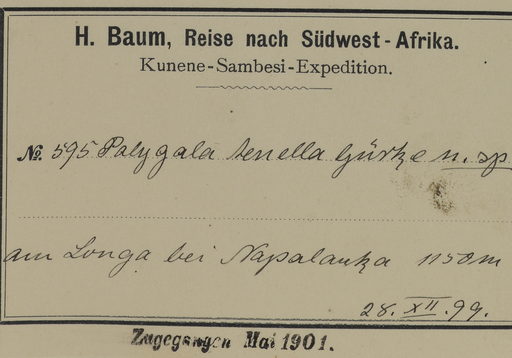 H. Baum, Reise nach Südwest-Afrika.
Kunene-Sambesi-Expedition.
No. 595 Polygala tenella Gürke n. sp
am Longa bei Napalanka 1150m
28. XII. 99.
Zugegangen Mai 1901.